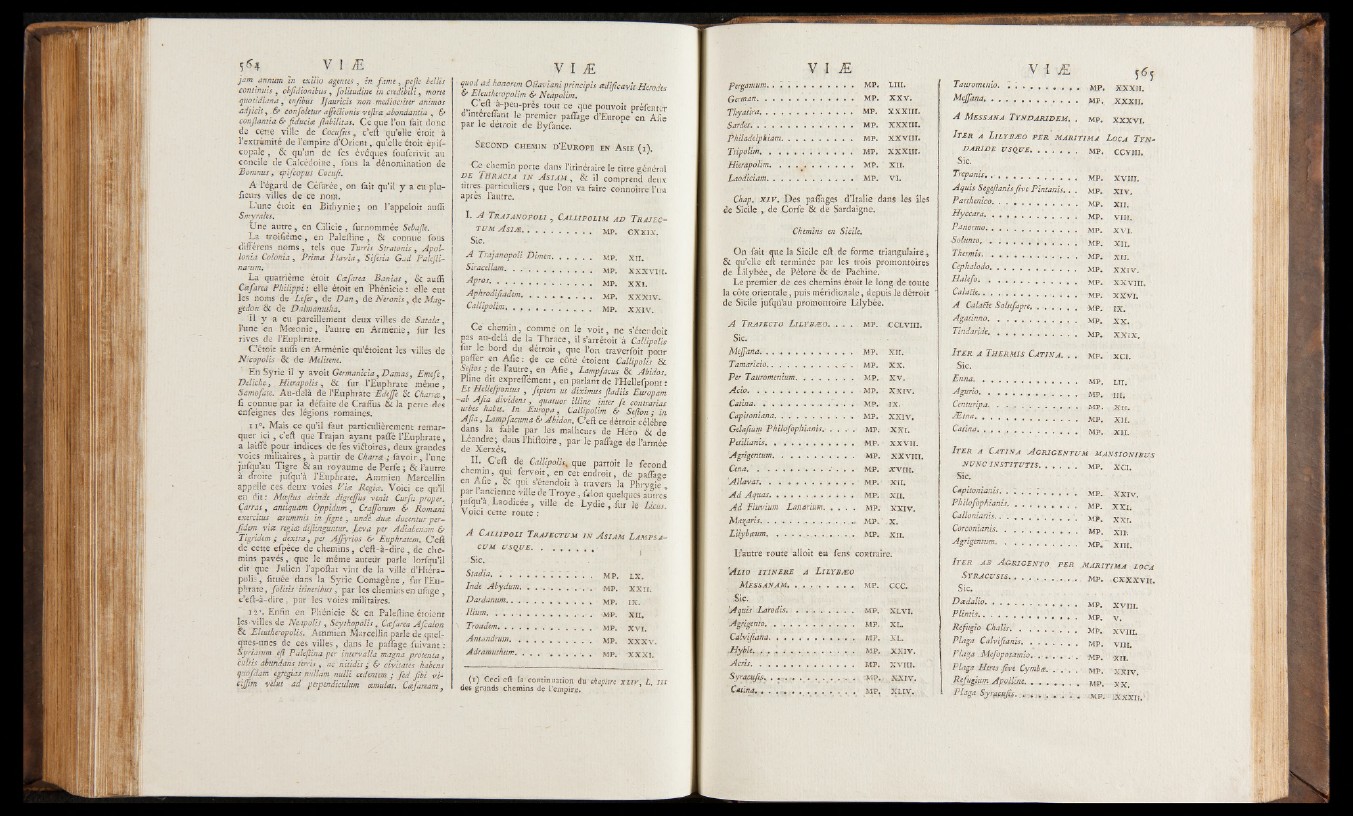 564 V I Æ
jam annum in exilio agentes, in fame, peste bellis
continuis, obsidionibus, solitudine in credibili, morte
quotidiana, ensibus Isauricis non mediocriter animos
adjicit, & consoletur afflictionis vestra abondantia, &
constantia & fiducia stabilitas. Ce que l'on fait donc
de cette ville de Cocusus, c'est qu'elle étoit à
l'extrêmité de l'empire d'Orient, qu'elle étoit épis-
copale, & qu'un de ses évêques souscrivit au
concile de Calcédoine, sous la dénomination de
Domnus, episcopus Cocusi.
A l'égard de Césarée, on sait qu'il y a eu plu-
sieurs villes de ce nom.
L'une étoit en Bithynie; on l'appeloit aussi
Smyrales.
Une autre, en Cilicie, surnommée Sebaste.
La troisième, en Palestine, & connue sous
différens noms, tels que Turris Stratonis, Apol-
lonia Colonia, Prima Flavia, Siferia Gad Palesti-
narum.
La quatrième étoit Cæsarea Banias, & aussi
Cæsarea Philippi: elle étoit en Phénicie: elle eut
les noms de Leser, de Dan, de Neronis, de Mag-
gedon & de Dalmanutha.
Il y a eu pareillement deux villes de Satala,
l'une en Mœonie, l'autre en Armenie, sur les
rives de l'Euphrate.
C'étoit aussi en Arménie qu'étoient les villes de
Nicopolis & de Melitene.
En Syrie il y avoit Germanicia, Damas, Emese,
Deliche, Hierapolis, & sur l'Euphrate même,
Samosate. Au-delà de l'Euphrate Edesse & Charræ,
si connue par la défaite de Crassus & la perte des
enseignes des légions romaines.
11°. Mais ce qu'il faut particulièrement remar-
quer ici, c'est que Trajan ayant passé l'Euphrate,
a laissé pour indices de ses victoires, deux grandes
voies militaires, à partir de Charræ; savoir, l'une
jusqu'au Tigre & au royaume de Perse; & l'autre
à droite jusqu'à l'Euphrate. Ammien Marcellin
appelle ces deux voies Viæ Regiæ. Voici ce qu'il
en dit: Mæstus deinde digressus venit Cursu propere
Carras, antiquam Oppidum, Crassorum & Romani
exercitus ærumnis in signe, unde duæ ducentur per-
sidem viæ regiæ distinguntur. Leva per Adiabenam &
Tigridem; dextra, per Assyrios & Euphratem. C'est
de cette espèce de chemins, c'est-à-dire, de che-
mins pavés, que le même auteur parle lorsqu'il
dit que Julien l'apostat vint de la ville d'Hiéra-
polis, située dans la Syrie Comagène, sur l'Eu-
phrate, solitis itineribus, par les chemins en usage,
c'est-à-dire, par les voies militaires.
12°. Enfin en Phénicie & en Palestine étoient
les villes de Neapolis, Scythopolis, Cæsarea Ascalon
& Eleutheropolis. Ammien Marcellin parle de quel-
ques-unes de ces villes, dans le passage suivant:
Syriarum est Palestina per intervalla magna protenta,
cultis abundans terris, ac nitidis; & civitates habens
quasdam egregias nullam nulli cedentem; sed sibi vi-
cissim velut ad perpendiculum æmulas. Cæsaream,
V I Æ
quod ad honorem Octaviani principis ædificavit Herodes
& Eleutheropolim & Neapolim.
C'est à-peu-près tout ce que pouvoit présenter
d'intéressant le premier passage d'Europe en Asie
par le détroit de Bysance.
SECOND CHEMIN D'EUROPE EN ASIE (1).
Ce chemin porte dans l'itinéraire le titre général
DE THRACIA IN ASIAM, & il comprend deux
titres particuliers, que l'on va faire connoître l'un
après l'autre.
I. A TRAJANOPOLI, CALLIPOLIM AD TRAJEC-
TUM ASIÆ. . . . . . . . . MP. CXXIX.
Sic.
A Trajanopoli Dimen. . . . . . MP. XII.
Siracellam. . . . . . . . . . MP. XXXVIII.
Apros. . . . . . . . . . . . MP. XXI.
Aphrodisiadem. . . . . . . . . MP. XXXIV.
Callipolim. . . . . . . . . . MP. XXIV.
Ce chemin, comme on le voit, ne s'étendoit
pas au-delà de la Thrace, il s'arrêtoit à Callipolis
sur le bord du détroit, que l'on traversoit pour
passer en Asie: de ce côté étoient Callipolis &
Sestos; de l'autre, en Asie, Lampsacus & Abidos.
Pline dit expressément, en parlant de l'Hellespont:
Et Hellespontus, septem ut diximus stadiis Europam
ab Asia dividens, quatuor illinc inter se contrarias
urbes habet. In Europa, Callipolim & Seston; in
Asia, Lampsacuma & Abidon. C'est ce détroit célèbre
dans la fable par les malheurs de Héro & de
Léandre; dans l'histoire, par le passage de l'armée
de Xerxès.
II. C'est de Callipolis que partoit le second
chemin, qui servoit, en cet endroit, de passage
en Asie, & qui s'étendoit à travers la Phrygie,
par l'ancienne ville de Troye, selon quelques autres
jusqu'à Laodicée, ville de Lydie, sur le Licos.
Voici cette route:
A CALLIPOLI TRAJECTUM IN ASIAM LAMPSA-
CUM USQUE. . . . . . . .
Sic.
Stadia. . . . . . . . . . . MP. LX.
Inde Abydum. . . . . . . . . MP. XXII.
Dardanum. . . . . . . . . . MP. IX.
Ilium. . . . . . . . . . . . MP. XII.
Troadem. . . . . . . . . . . MP. XVI.
Antandrum. . . . . . . . . . MP. XXXV.
Adramuthum. . . . . . . . . MP. XXXI.
(1) Ceci est la continuation du chapitre XLIV, L. III
des grands chemins de l'empire.
V I Æ
Pergamum. . . . . . . . . . MP. LIII.
German. . . . . . . . . . . MP. XXV.
Thyatira. . . . . . . . . . . MP. XXXIII.
Sardes. . . . . . . . . . . . MP. XXXIII.
Philadelphiam. . . . . . . . . MP. XXVIII.
Tripolim. . . . . . . . . . . MP. XXXIII.
Hierapolim. . . . . . . . . . MP. XII.
Laodiciam. . . . . . . . . . MP. VI.
Chap. XIV. Des passages d'Italie dans les îles
de Sicile, de Corse & de Sardaigne.
Chemins en Sicile.
On sait que la Sicile est de forme triangulaire,
& qu'elle est terminée par les trois promontoires
de Lilybée, de Pélore & de Pachine.
Le premier de ces chemins étoit le long de toute
la côte orientale, puis méridionale, depuis le détroit
de Sicile jusqu'au promontoire Lilybée.
A TRAJECTO LILYBÆO. . . . MP. CCLVIII.
Sic.
Messana. . . . . . . . . . . MP. XII.
Tamaricio. . . . . . . . . . MP. XX.
Per Tauromenium. . . . . . . MP. XV.
Acio. . . . . . . . . . . . . MP. XXIV.
Catina. . . . . . . . . . . . MP. IX.
Capitoniana. . . . . . . . . . MP. XXIV.
Gelasium Philosophianis. . . . . MP. XXI.
Petilianis. . . . . . . . . . . MP. XXVII.
Agrigentum. . . . . . . . . . MP. XXVIII.
Cena. . . . . . . . . . . . MP. XVIII.
Allavar. . . . . . . . . . . . MP. XII.
Ad Aquas. . . . . . . . . . . MP. XII.
Ad Fluvium Lanarium. . . . . MP. XXIV.
Mazaris. . . . . . . . . . . MP. X.
Lilybæum. . . . . . . . . . . MP. XII.
L'autre route alloit en sens contraire.
ALIO ITINERE A LILYBÆO
MESSANAM. . . . . . . . . MP. CCC.
Sic.
Aquis Larodis. . . . . . . . . MP. XLVI.
Agrigento. . . . . . . . . . . MP. XL.
Calvisiana. . . . . . . . . . . MP. XL.
Hyble. . . . . . . . . . . . MP. XXIV.
Acris. . . . . . . . . . . . MP. XVIII.
Syracusis. . . . . . . . . . . MP. XXIV.
Catina. . . . . . . . . . . . MP. XLIV.
V I Æ 565
Tauromenio. . . . . . . . . . MP. XXXII.
Messana. . . . . . . . . . . MP. XXXII.
A MESSANA TYNDARIDEM. . MP. XXXVI.
ITER A LILYBÆO PER MARITIMA LOCA TYN-
DARIDE USQUE. . . . . . . MP. CCVIII.
Sic.
Trepanis. . . . . . . . . . . MP. XVIII.
Aquis Segestanis sive Pintanis. . . MP. XIV.
Parthenico. . . . . . . . . . MP. XII.
Hyccara. . . . . . . . . . . MP. VIII.
Panermo. . . . . . . . . . . MP. XVI.
Solunto. . . . . . . . . . . MP. XII.
Thermis. . . . . . . . . . . MP. XII.
Cephalodo. . . . . . . . . . MP. XXIV.
Haleso. . . . . . . . . . . . MP. XXVIII.
Calacte. . . . . . . . . . . . MP. XXVI.
A Calacte Solusapre. . . . . . MP. IX.
Agatinno. . . . . . . . . . . MP. XX.
Tindaride. . . . . . . . . . . MP. XXIX.
ITER A THERMIS CATINA. . . MP. XCI.
Sic.
Enna. . . . . . . . . . . . MP. LII.
Agurio. . . . . . . . . . . . MP. III.
Centuripa. . . . . . . . . . . MP. XII.
Ætna. . . . . . . . . . . . MP. XII.
Catina. . . . . . . . . . . . MP. XII.
ITER A CATINA AGRIGENTUM MANSIONIBUS
NUNC INSTITUTIS. . . . . . MP. XCI.
Sic.
Capitonianis. . . . . . . . . . MP. XXIV.
Philosophianis. . . . . . . . . MP. XXI.
Callonianis. . . . . . . . . . MP. XXI.
Corconianis. . . . . . . . . . MP. XII.
Agrigentum. . . . . . . . . . MP. XIII.
ITER AB AGRIGENTO PER MARITIMA LOCA
SYRACUSIS. . . . . . . . . MP. CXXXVII.
Sic.
Dædalio. . . . . . . . . . . MP. XVIII.
Plintis. . . . . . . . . . . . MP. V.
Refugio Chalis. . . . . . . . . MP. XVIII.
Plaga Calvisianis. . . . . . . . MP. VIII.
Plaga Mesopotamio. . . . . . . MP. XII.
Plaga Hereo sive Cymbæ. . . . MP. XXIV.
Refugium Apolline. . . . . . . MP. XX.
Plaga Syracusis. . . . . . . . MP. XXXII.